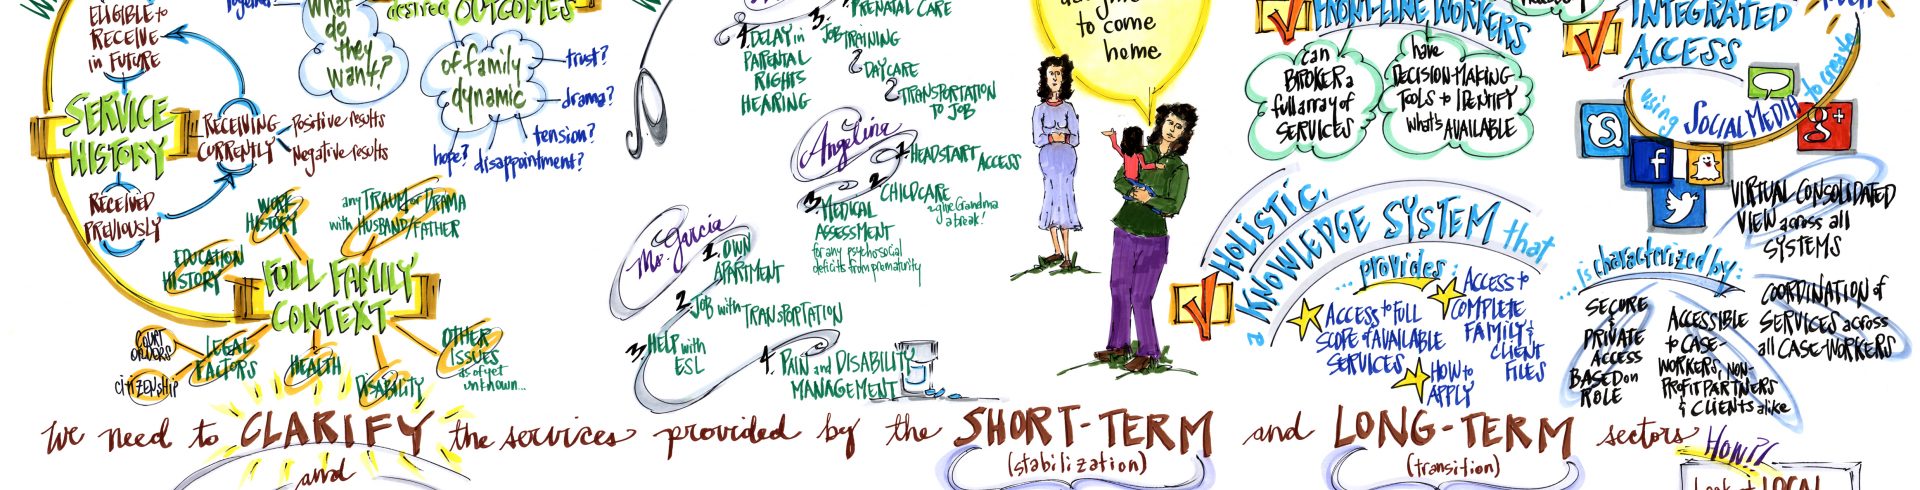 ELIGIBLE to
RECEIVE
in FUTURE
SERVICE
HISTORY
RECEIVING
CURRENTLY
Positive results
Negative results
RECEIVED
PREVIOUSLY
What
do
they
want?
desired OUTCOMES
of family
dynamic
trust?
drama?
tension?
disappointment?
hope?
WORK
HISTORY
any TRAUMA or DRAMA
with HUSBAND/FATHER
EDUCATION
HISTORY
FULL FAMILY
CONTEXT
COURT
ORDERS
CITIZENSHIP
LEGAL
FACTORS
HEALTH
DISABILITY
OTHER
ISSUES
as of yet
unknown...
4. DELAY in
PARENTAL
RIGHTS
HEARING
PRENATAL CARE
3. JOB TRAINING
2 DAYCARE
2 TRANSPORTATION
TO JOB
Angelina
1. HEADSTART ACCESS
2. CHILDCARE
2 give Grandma
a break!
3. MEDICAL
ASSESSMENT
for any psychosocial
deficits from prematurity
Ms. Garcia
1. OWN
APARTMENT
2. JOB with TRANSPORTATION
3. HELP with
ESL
4. PAIN and DISABILITY
MANAGEMENT
to come
home
FRONT-LINE WORKERS
can
BROKER a
full array of
SERVICES
have
DECISION-MAKING
TOOLS to IDENTIFY
what's AVAILABLE
a HOLISTIC,
KNOWLEDGE SYSTEM that
...provides:
ACCESS to FULL
SCOPE of AVAILABLE
SERVICES
ACCESS to
COMPLETE
FAMILY &
CLIENT
FILES
HOW to
APPLY
INTEGRATED
ACCESS
using SOCIAL MEDIA to create
S
f
g+
VIRTUAL CONSOLIDATED
VIEW across all
SYSTEMS
...is characterized by:
SECURE
&
PRIVATE
ACCESS
BASED on
ROLE
ACCESSIBLE
to CASE-
WORKERS, NON-
PROFIT PARTNERS
& CLIENTS alike
COORDINATION of
SERVICES across
all CASE-WORKERS
We need to CLARIFY the services provided by the SHORT-TERM and LONG-TERM sectors
(stabilization)
(transition)
and
HOW?!
LOCAL